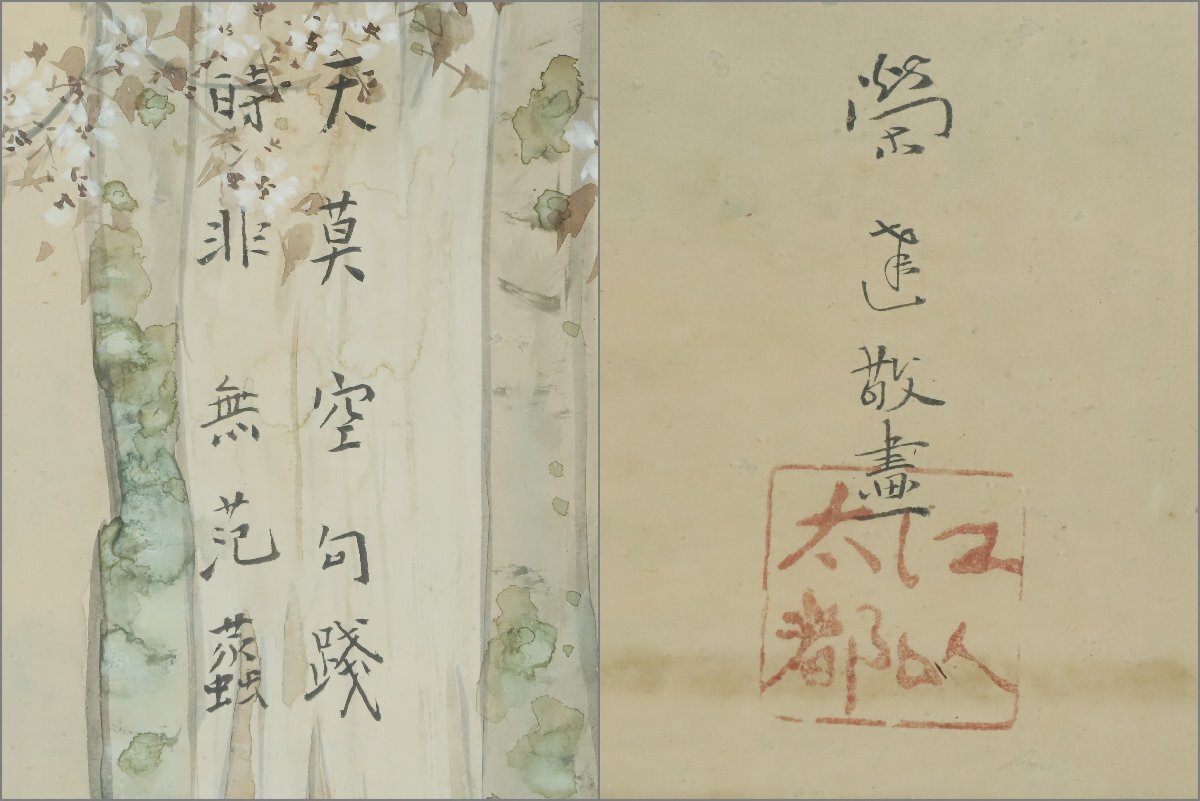 天莫空句践
時非無范蠡
榮達敬畫
江山
太都